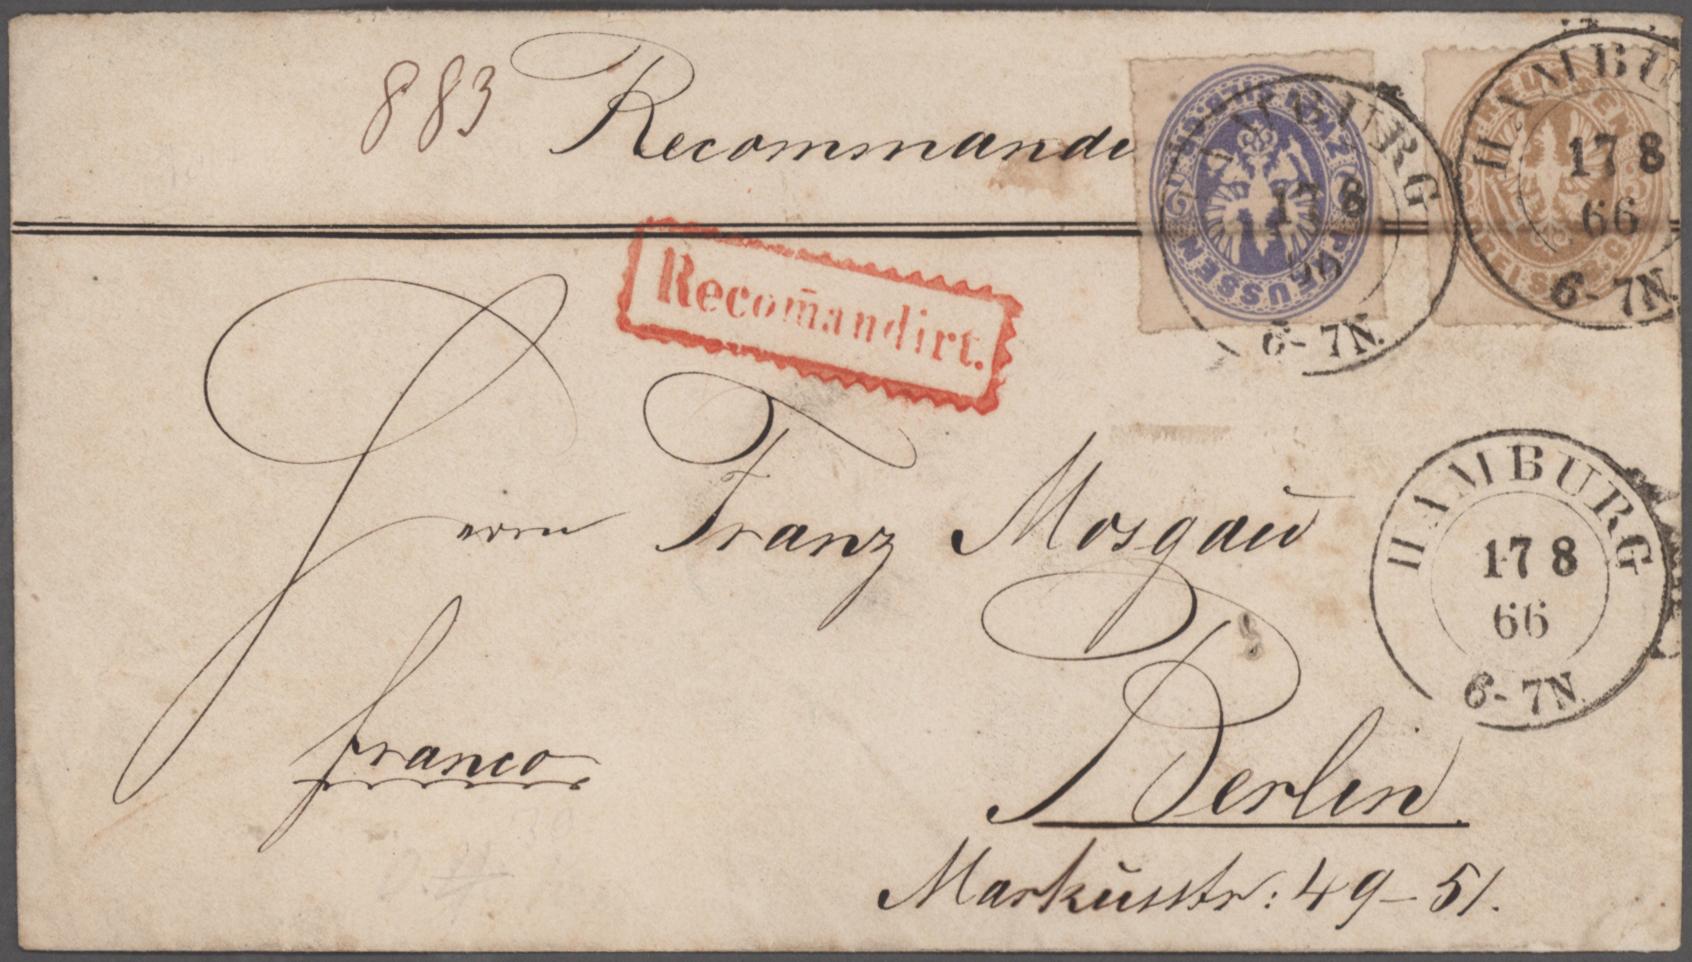 883 Recommandi
Recom̄andirt.
PREUSSEN
HAMBURG
17 8
66
6-7N.
HAMBU
17 8
66
6-7N.
Herrn Franz Mosgau
HAMBURG
17 8
66
6-7N.
franco
Berlin.
Markusstr: 49-51.